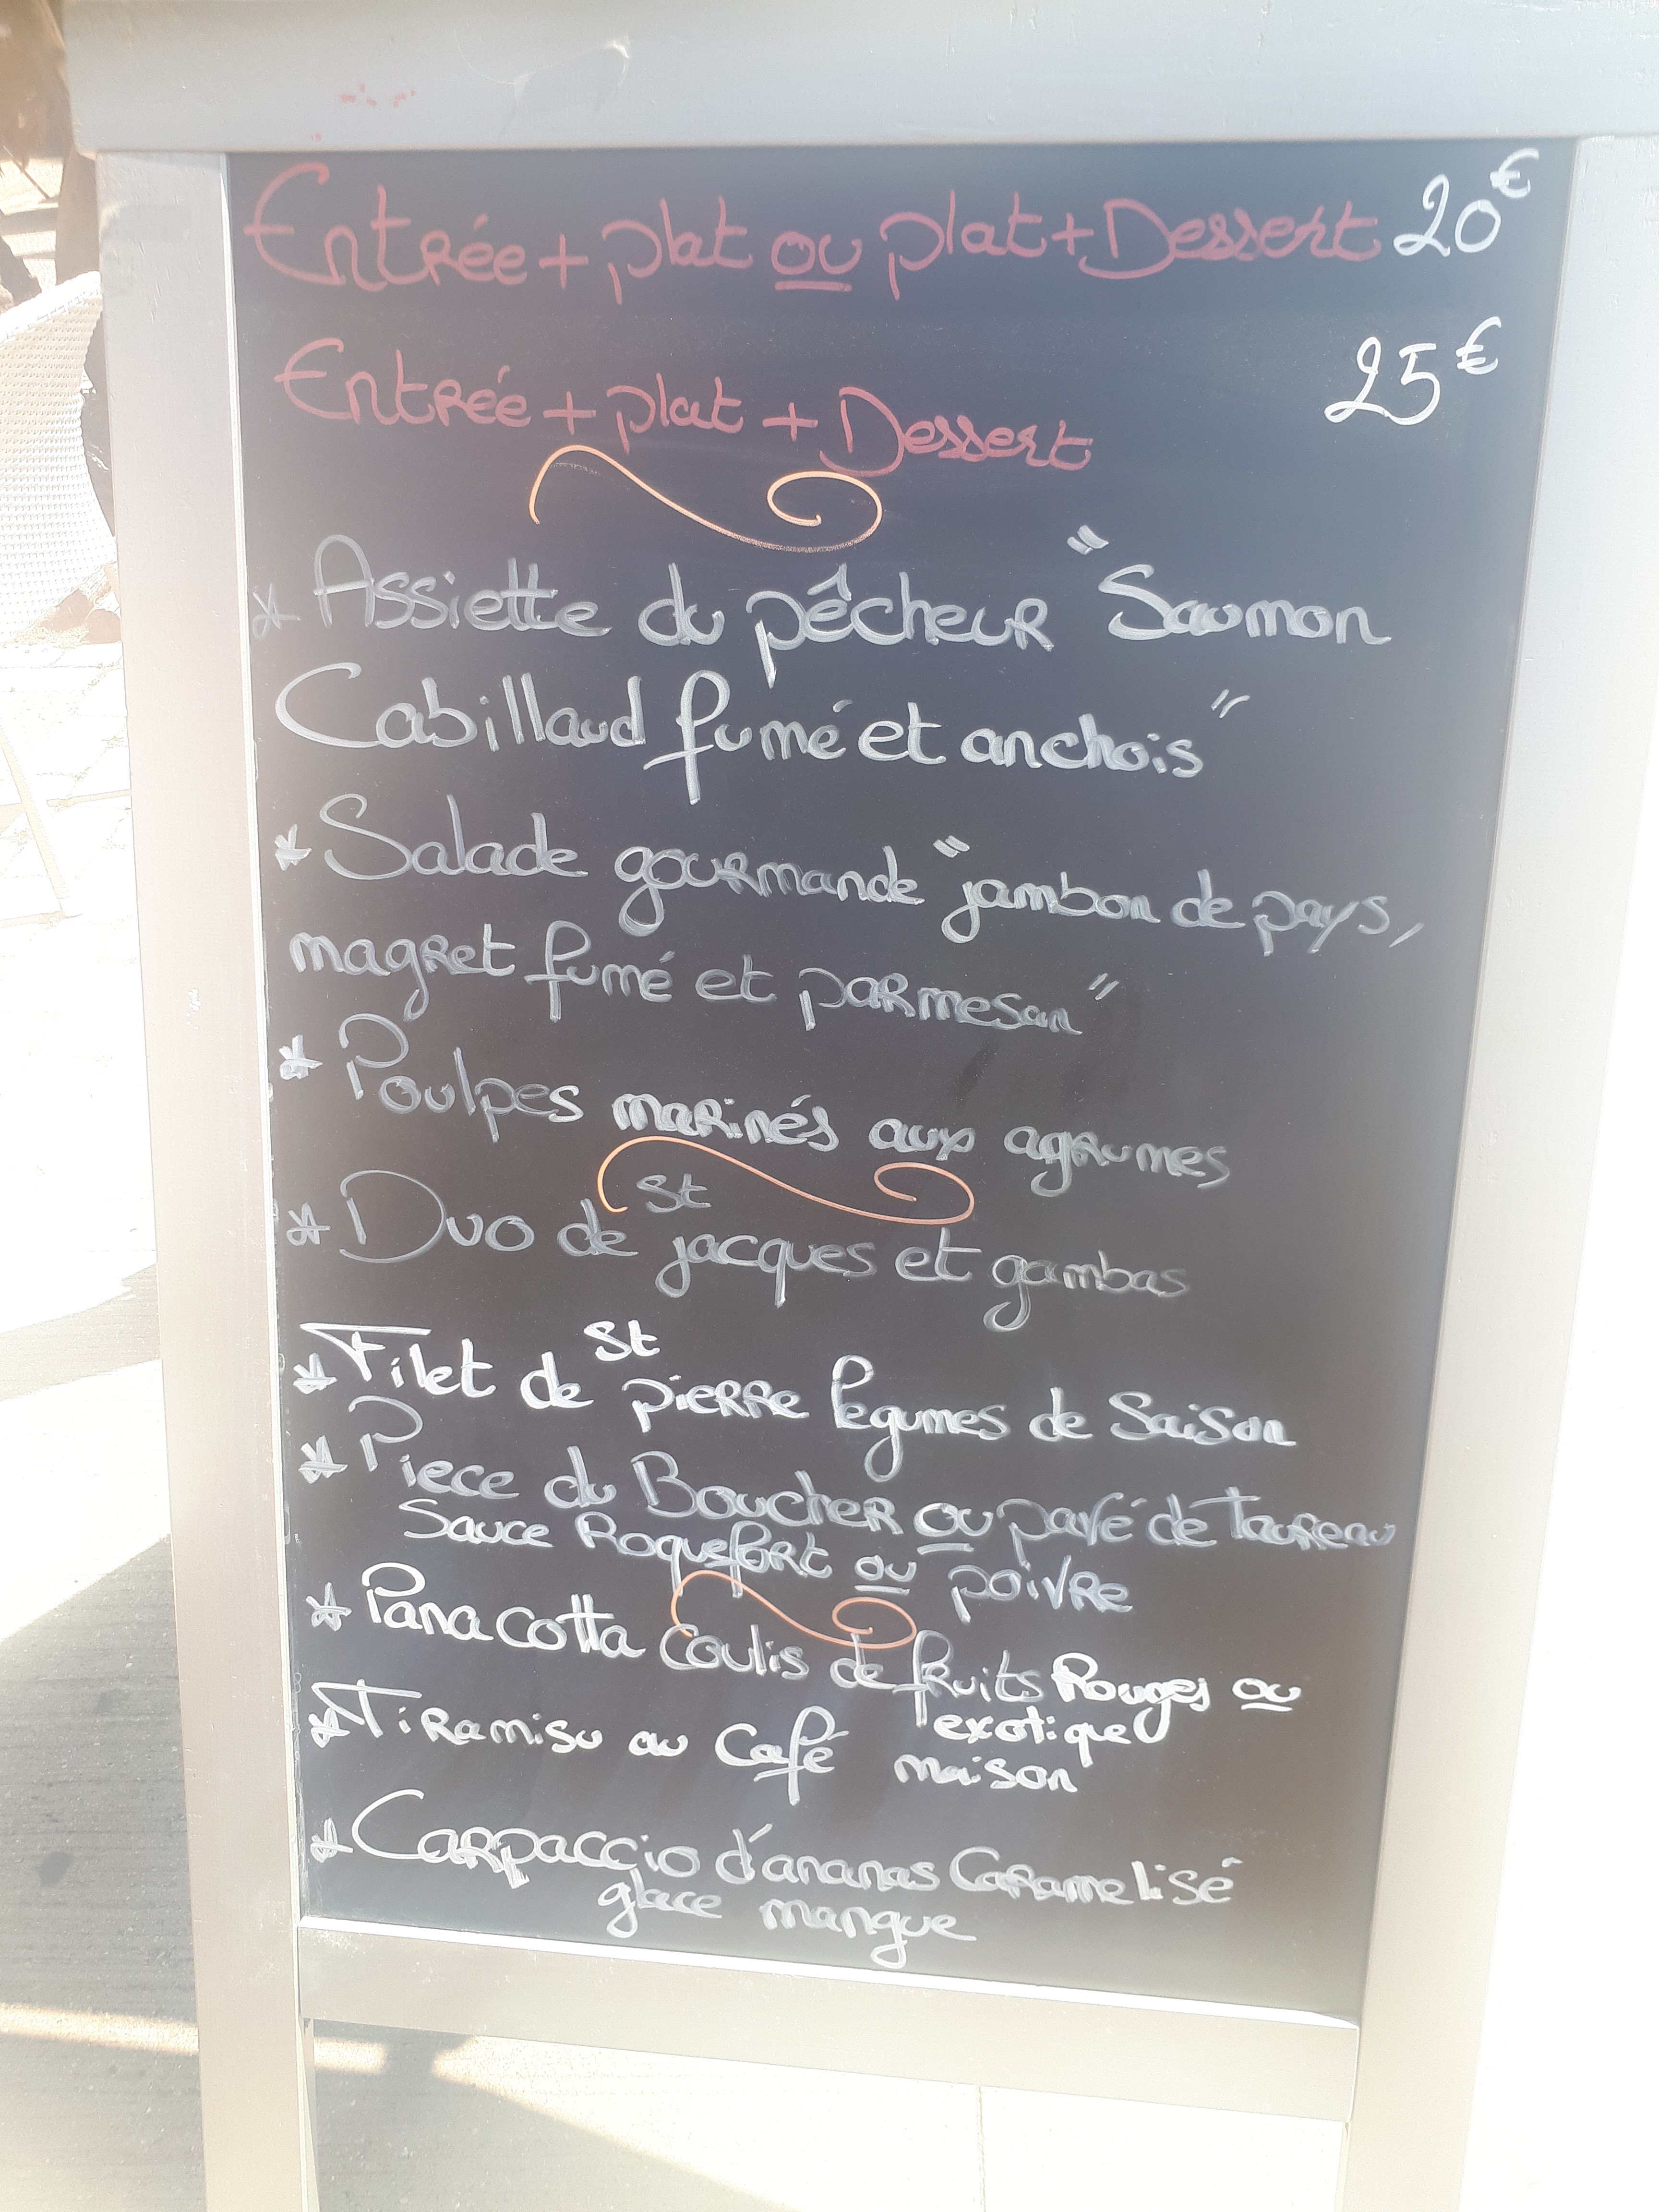 Entrée + plat ou plat + Dessert 20€
Entrée + plat + Dessert 25€
* Assiette du pêcheur "Saumon
Cabillaud fumé et anchois"
* Salade gourmande "jambon de pays,
magret fumé et parmesan"
* Poulpes marinés aux agrumes
* Duo de St jacques et gambas
* Filet de St pierre légumes de Saison
* Piece du Boucher ou pavé de Taureau
Sauce Roquefort ou poivre
* Pana cotta coulis de fruits Rouges ou
exotique
* Tiramisu au Café maison
* Carpaccio d'ananas Caramelisé
glace mangue